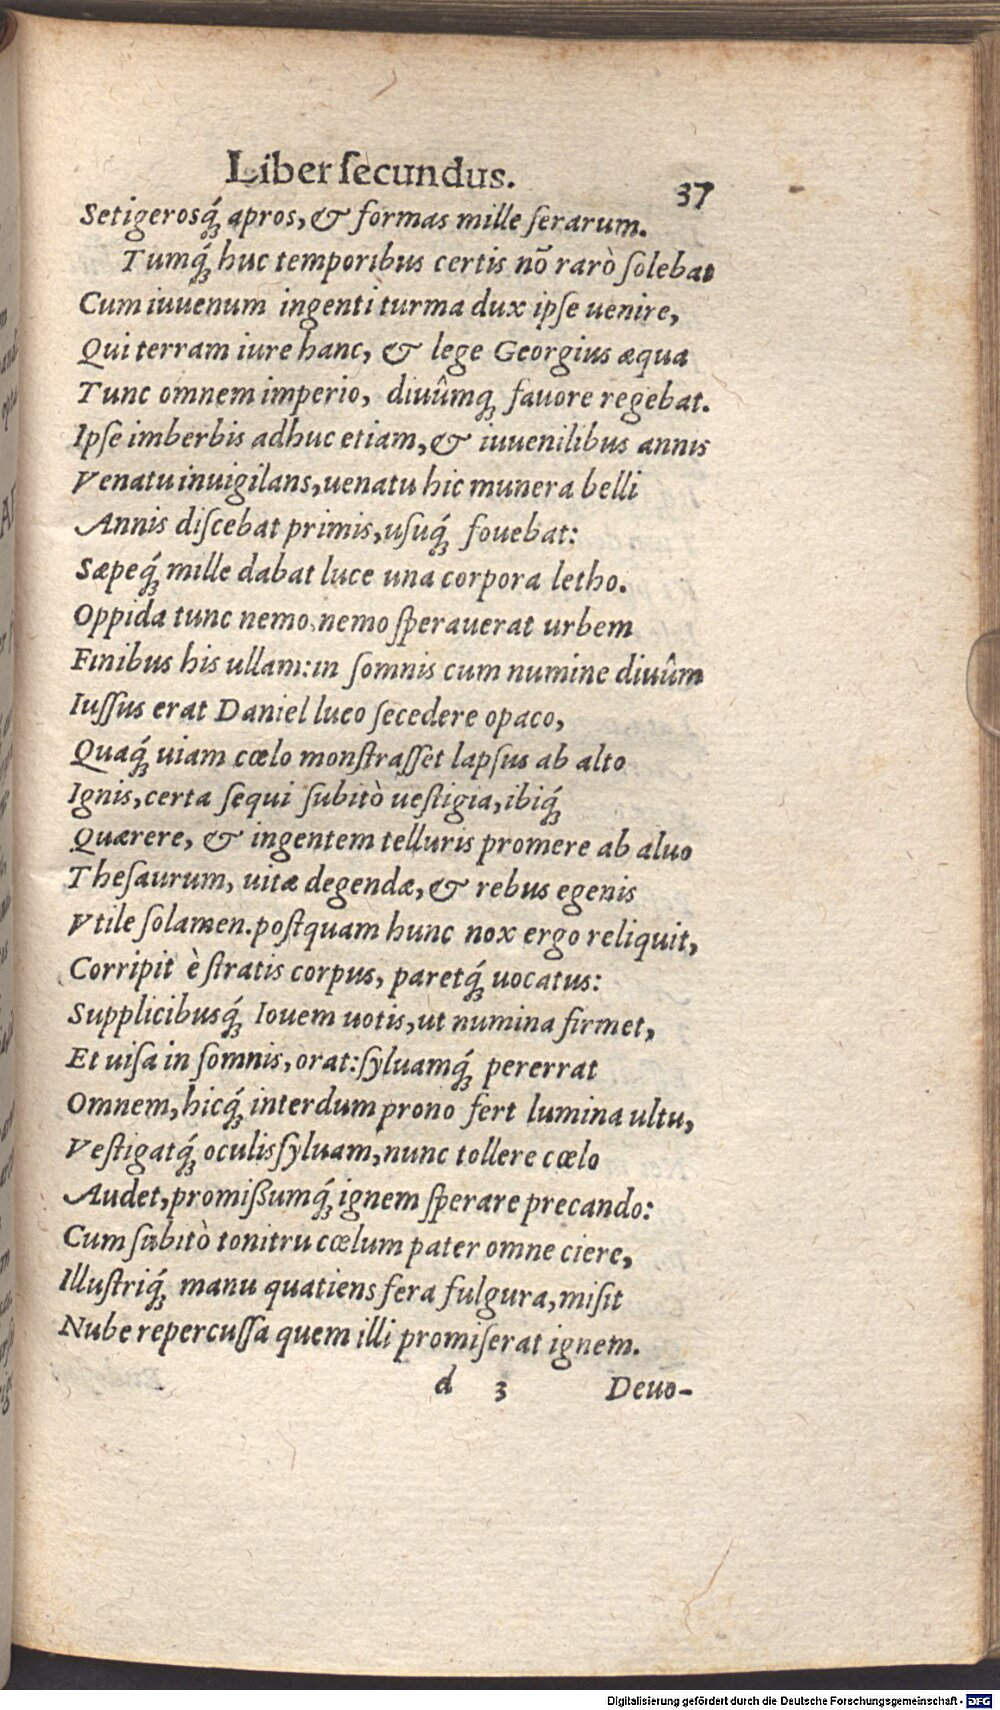 Liber ſecundus.
37
Setigerosq́; apros, & formas mille ferarum.
Tumq́; huc temporibus certis nō rarò ſolebat
Cum iuuenum ingenti turma dux ipſe uenire,
Qui terram iure hanc, & lege Georgius æqua
Tunc omnem imperio, diuûmq; fauore regebat.
Ipſe imberbis adhuc etiam, & iuuenilibus annis
Venatu inuigilans, uenatu hic munera belli
Annis diſcebat primis, uſuq́; fouebat:
Sæpeq́; mille dabat luce una corpora letho.
Oppida tunc nemo, nemo ſperauerat urbem
Finibus his ullam: in ſomnis cum numine diuûm
Iuſſus erat Daniel luco ſecedere opaco,
Quaq́; uiam cœlo monſtraſſet lapſus ab alto
Ignis, certa ſequi ſubitò ueſtigia, ibiq́;
Quærere, & ingentem telluris promere ab aluo
Theſaurum, uitæ degendæ, & rebus egenis
Vtile ſolamen. poſtquam hunc nox ergo reliquit,
Corripit è ſtratis corpus, paretq́; uocatus:
Supplicibusq́; Iouem uotis, ut numina firmet,
Et uiſa in ſomnis, orat: ſyluamq́; pererrat
Omnem, hicq́; interdum prono fert lumina ultu,
Veſtigatq́; oculis ſyluam, nunc tollere cœlo
Audet, promißumq́; ignem ſperare precando:
Cum ſubitò tonitru cœlum pater omne ciere,
Illuſtriq́; manu quatiens fera fulgura, miſit
Nube repercuſſa quem illi promiſerat ignem.
d 3 Deuo-
Digitalisierung gefördert durch die Deutsche Forschungsgemeinschaft - DFG